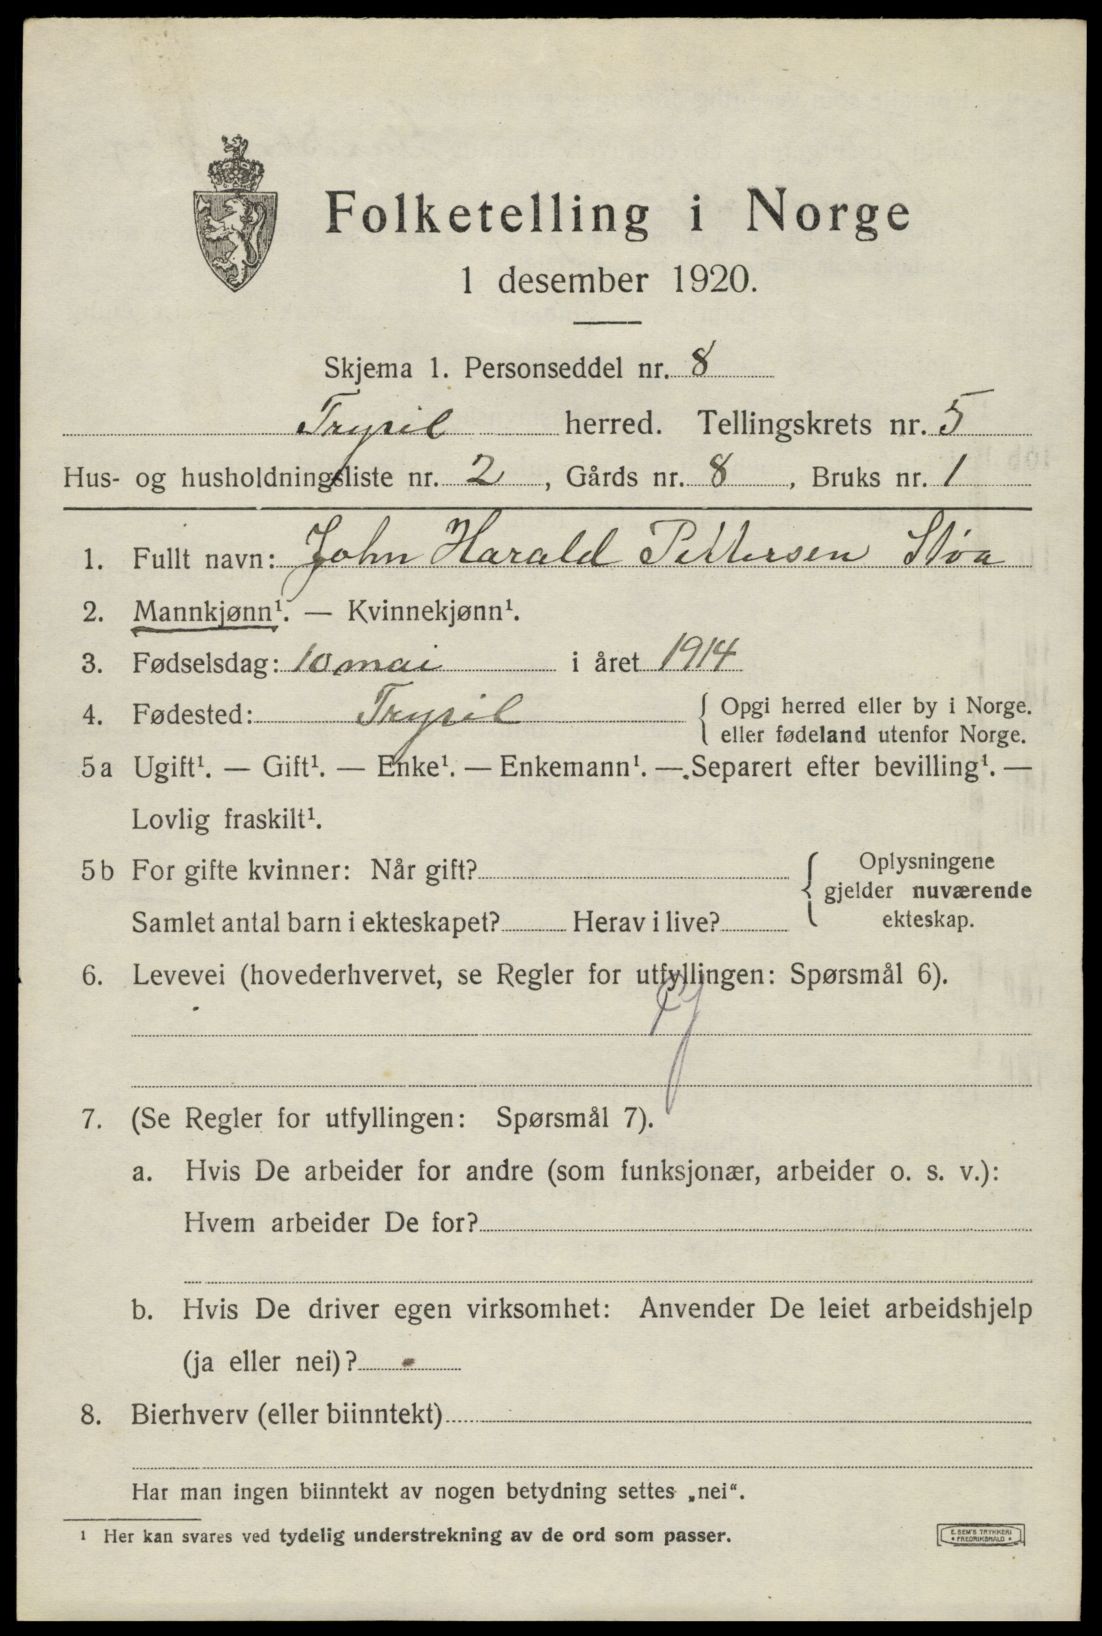 Folketelling i Norge
1 desember 1920.
Skjema 1. Personseddel nr. 8
Trysil herred. Tellingskrets nr. 5
Hus- og husholdningsliste nr. 2, Gårds nr. 8, Bruks nr. 1
1. Fullt navn: John Harald Pettersen Støa
2. Mannkjønn¹. — Kvinnekjønn¹.
3. Fødselsdag: 10 mai i året 1914
4. Fødested: Trysil { Opgi herred eller by i Norge.
eller fødeland utenfor Norge.
5a Ugift¹. — Gift¹. — Enke¹. — Enkemann¹. — Separert efter bevilling¹. —
Lovlig fraskilt¹.
5b For gifte kvinner: Når gift? { Oplysningene
gjelder nuværende
ekteskap.
Samlet antal barn i ekteskapet? Herav i live?
6. Levevei (hovederhvervet, se Regler for utfyllingen: Spørsmål 6).
7. (Se Regler for utfyllingen: Spørsmål 7).
a. Hvis De arbeider for andre (som funksjonær, arbeider o. s. v.):
Hvem arbeider De for?
b. Hvis De driver egen virksomhet: Anvender De leiet arbeidshjelp
(ja eller nei)?
8. Bierhverv (eller biinntekt)
Har man ingen biinntekt av nogen betydning settes „nei“.
¹ Her kan svares ved tydelig understrekning av de ord som passer.
E. SEM'S TRYKKERI
FREDRIKSHALD